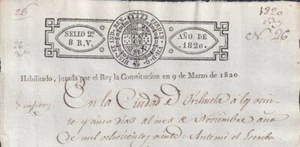 26
1820
Nº 26
SELLO 2º
8 R. V.
AÑO DE
1820.
Habilitado, jurada por el Rey la Constitucion en 9 de Marzo de 1820.
En la Ciudad de Orihuela a los vein
te y cinco dias del mes de Noviembre año
de mil ochocientos veinte Antemi el